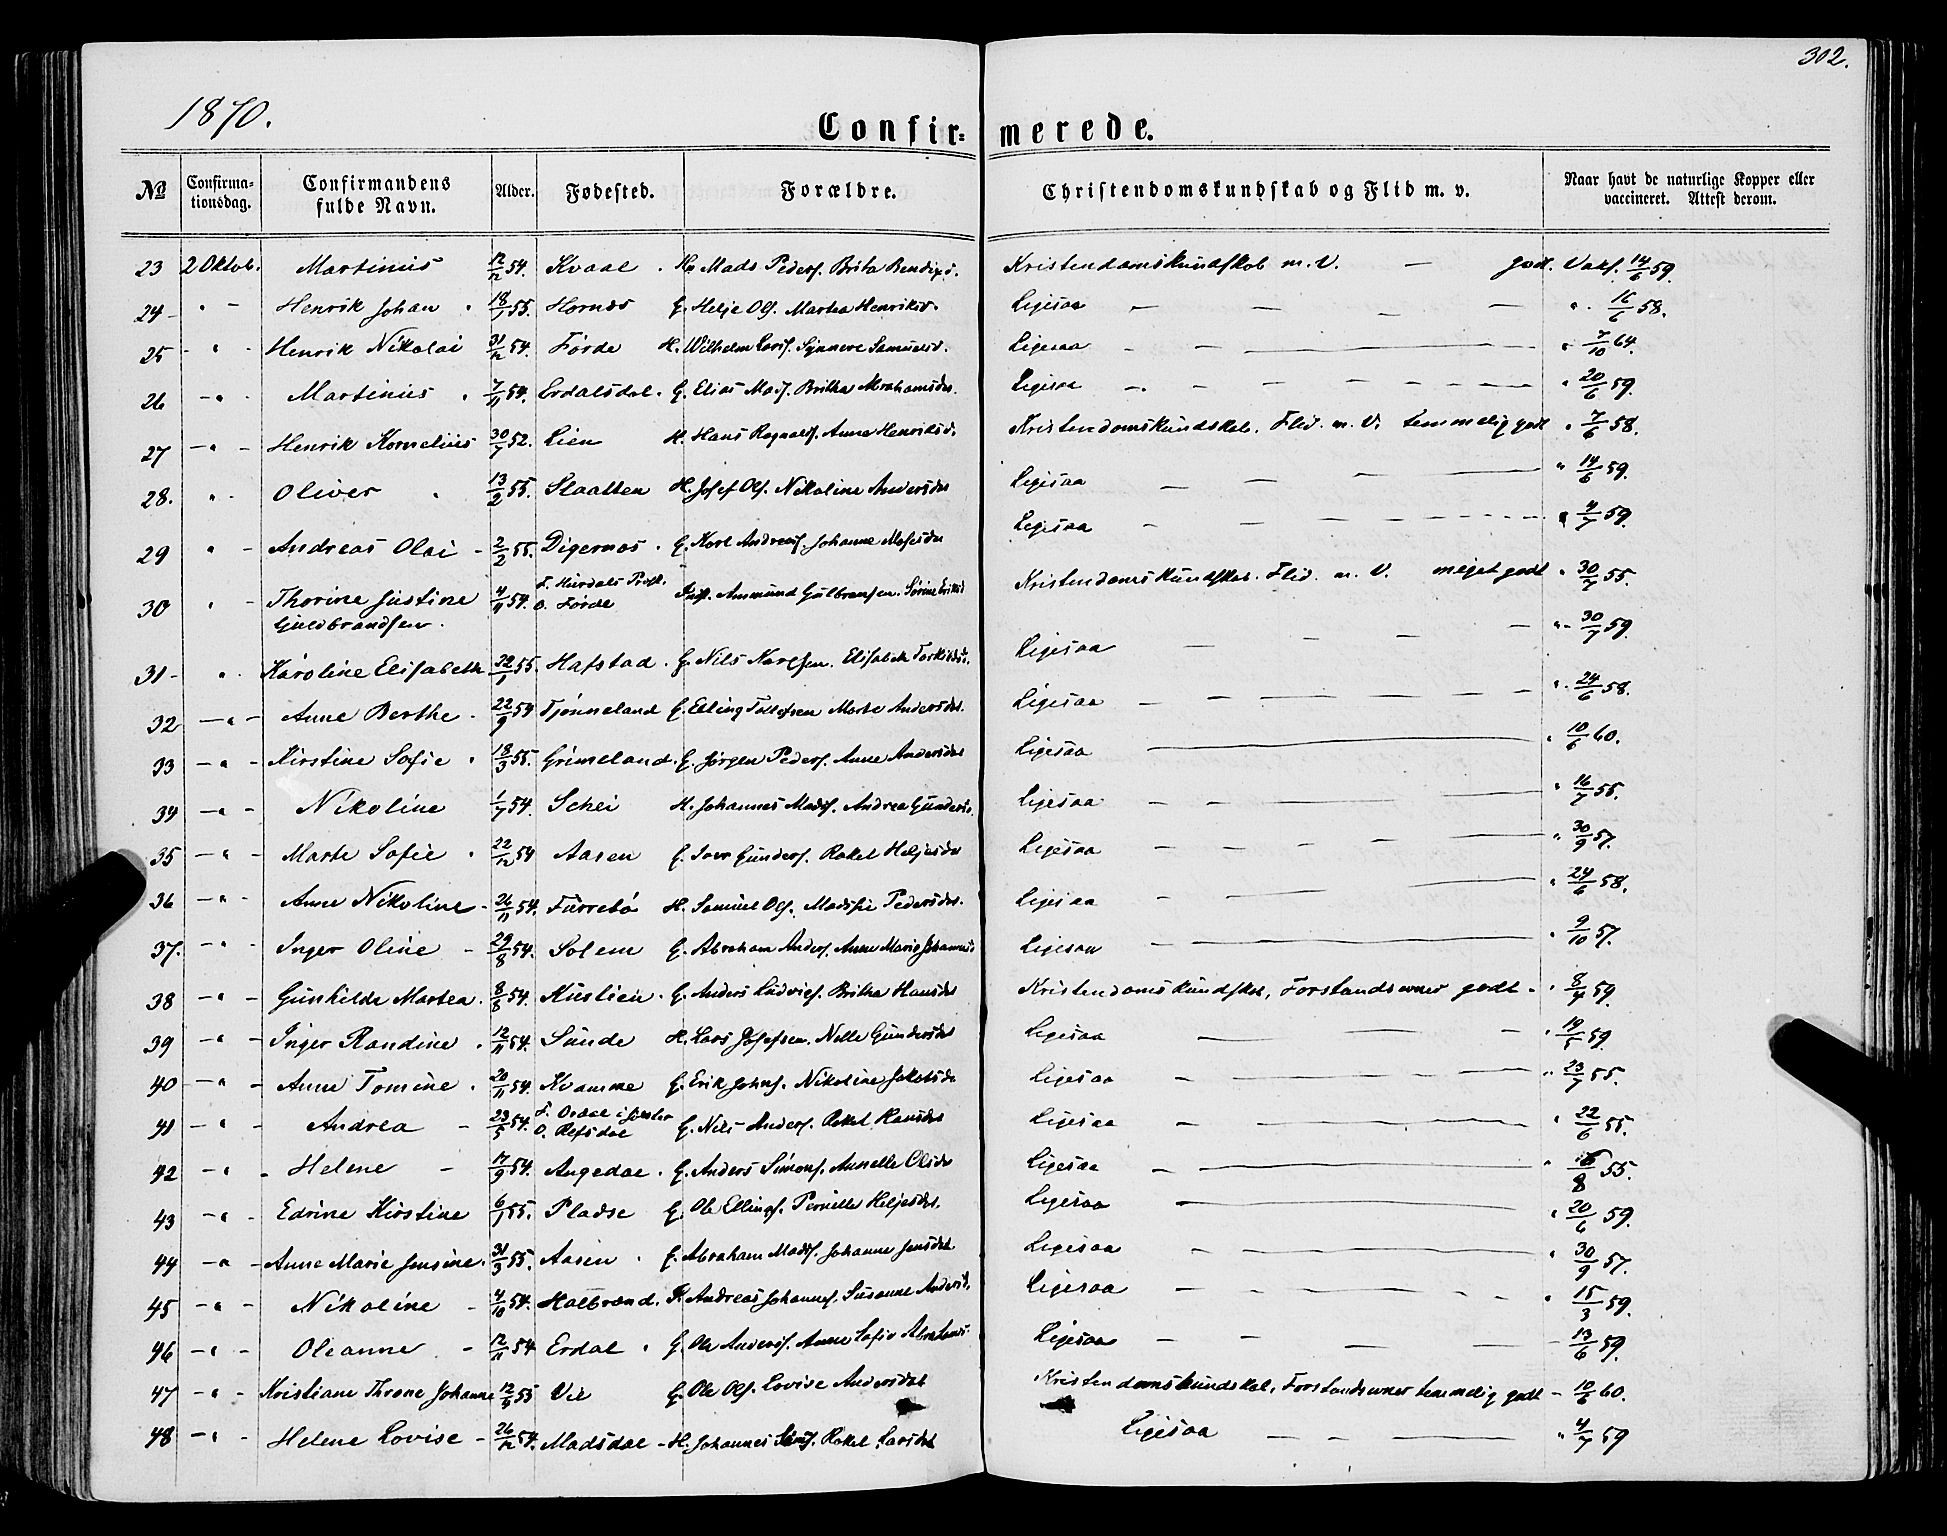 302.
1870.
Confir= merede.
No
Confirma-
tionsdag.
Confirmandens
fulde Navn.
Alder.
Fødested.
Forældre.
Christendomskundskab og Flid m. v.
Naar havt de naturlige Kopper eller
vaccineret. Attest derom.
23 2 Oktob. Martinus 12/12 54. Kvaal. Mads Peders. Brita Bendixd. Kristendomskundskab m. V. — godt. Vaks. 14/6 59.
24 " - Henrik Johan 18/1 55. Hornes G. Helje Ols. Martea Henriksd. Ligesaa " 16/6 58.
25 - " - Henrik Nikolai 31/12 54. Førde H. Wilhelm Synneve Samuelsd. Ligesaa " 7/10 64.
26 - " - Martinus 7/11 54. Erdalsdal. G. Elias Mads. Britha Abrahamsdr. Ligesaa " 20/6 59.
27 - " - Henrik Kornelius 30/7 52. Lien H. Hans Ragnalds. Anne Henriksd. Kristendomskundskab. Flid. m. V. temmelig godt " 7/6 58.
28. " - Oliver 13/2 55. Slaatten H. Josef Ols. Nikoline Andersdr Ligesaa " 14/6 59.
29 " - Andreas Olai - 2/2 55. Digernes. G. Karl Andreas. Johanne Mosesdr Ligesaa 4/7 59.
30 " - Thorine Justine 4/11 54. F. Hurdals Præst.
Guldbrandsen. O. Førde Ammund Gulbransen. Sørine Kristendomskundskab. Flid. m. V. meget godt " 30/7 55.
31 - " - Karoline Elisabeth 22/1 55. Hafstad. G. Nils Karlsen. Elisabeth Ligesaa " - 30/7 59.
32 - " - Anne Berthe. 22/9 54 Tjønneland G. Elling Tollefsen Marte Andersdr. Ligesaa " 24/6 58.
33 - " - Kirstine Sofie 18/3 55. Grimeland. G. Jørgen Peders. Anne Andersdr Ligesaa " 10/6 60.
34 - " - Nikoline 1/7 54. Schei H. Johannes Mads. Andrea Gundersd. Ligesaa " 16/7 55.
35 - " - Marte Sofie 22/12 54 Aasen G. Iver Gunders. Rakel Heljesdr Ligesaa " 30/9 57.
36 - " - Anne Nikoline - 26/11 54. Furrebø H. Samuel Ols. Madsfie Pedersdr. Ligesaa " 24/6 58.
37. - " - Inger Oline - 29/8 54. Solem G. Abraham Anders. Anne Marie Johannesd. Ligesaa " 9/10 57.
38 - " - Gunhilda Martea. 8/8 54. Kuslien. G. Anders Ludvigs. Britha Hansdr Kristendomskundskab, Forstandsevner godt - " 8/7 59.
39 - " - Inger Randine. 12/11 54. Sunde H. Lars Josefsen. Nelle Gundersdr Ligesaa " 59.
40 - " - Anne Tomine. 20/11 54. Kvamme G. Erik Johns. Nikoline Jakobsdr Ligesaa " 23/7 55.
41 - " - Andrea - 23/5 54. F. i Jølster
O. Refsdal G. Nils Anders. Rakel Hansdr Ligesaa " 22/6 55.
42 - " - Helene - 17/9 54. Angedal. G. Anders Simons. Annelle Olsdr Ligesaa " 55.
43 - " - Edrine Kirstine 6/1 55. Pladse G. Ole Ellings. Pernille Heljesdr. Ligesaa " 20/6 59.
44 - " - Anne Marie Jensine. 31/3 55. Aasen. G. Abraham Mads. Johanne Jensdr Ligesaa " 30/9 57.
45 - " - Nikoline - 4/10 54. Halbrend. Andreas Johannes. Susanne Andersd. Ligesaa " 15/3 59.
46 - " - Oleanne. - 12/11 54 Erdal. G. Ole Anders. Anne Sofie Ligesaa - 13/6 59.
47 - " - Kristiane Throne Johanne 55 Vie G. Ole Ols. Lovise Andersdr Kristendomskundskab, Forstandsevner temmelig godt - 10/6 60.
48 - " - Helene Lovise - 26/12 54. Madsdal - H. Johannes Rakel Larsdr Ligesaa " 4/7 59